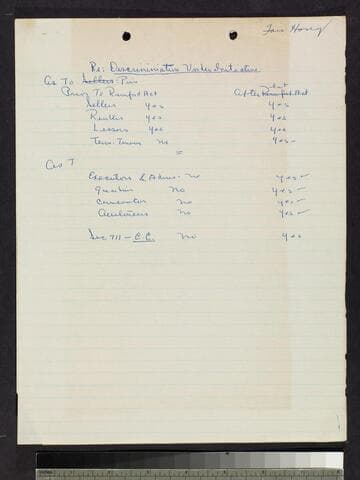 Fair Hous'g
Re: Discrimination Under Initiative
As To Sellers
Prior To Rumford Act After Rumford Act
Sellers yes yes
Renters yes yes
Lessors yes yes
no yes -
=
As T
Executors & Admrs. no yes -
Guardian no yes -
Conservator no yes -
yes -
no
Sec 711 - C.C. no yes